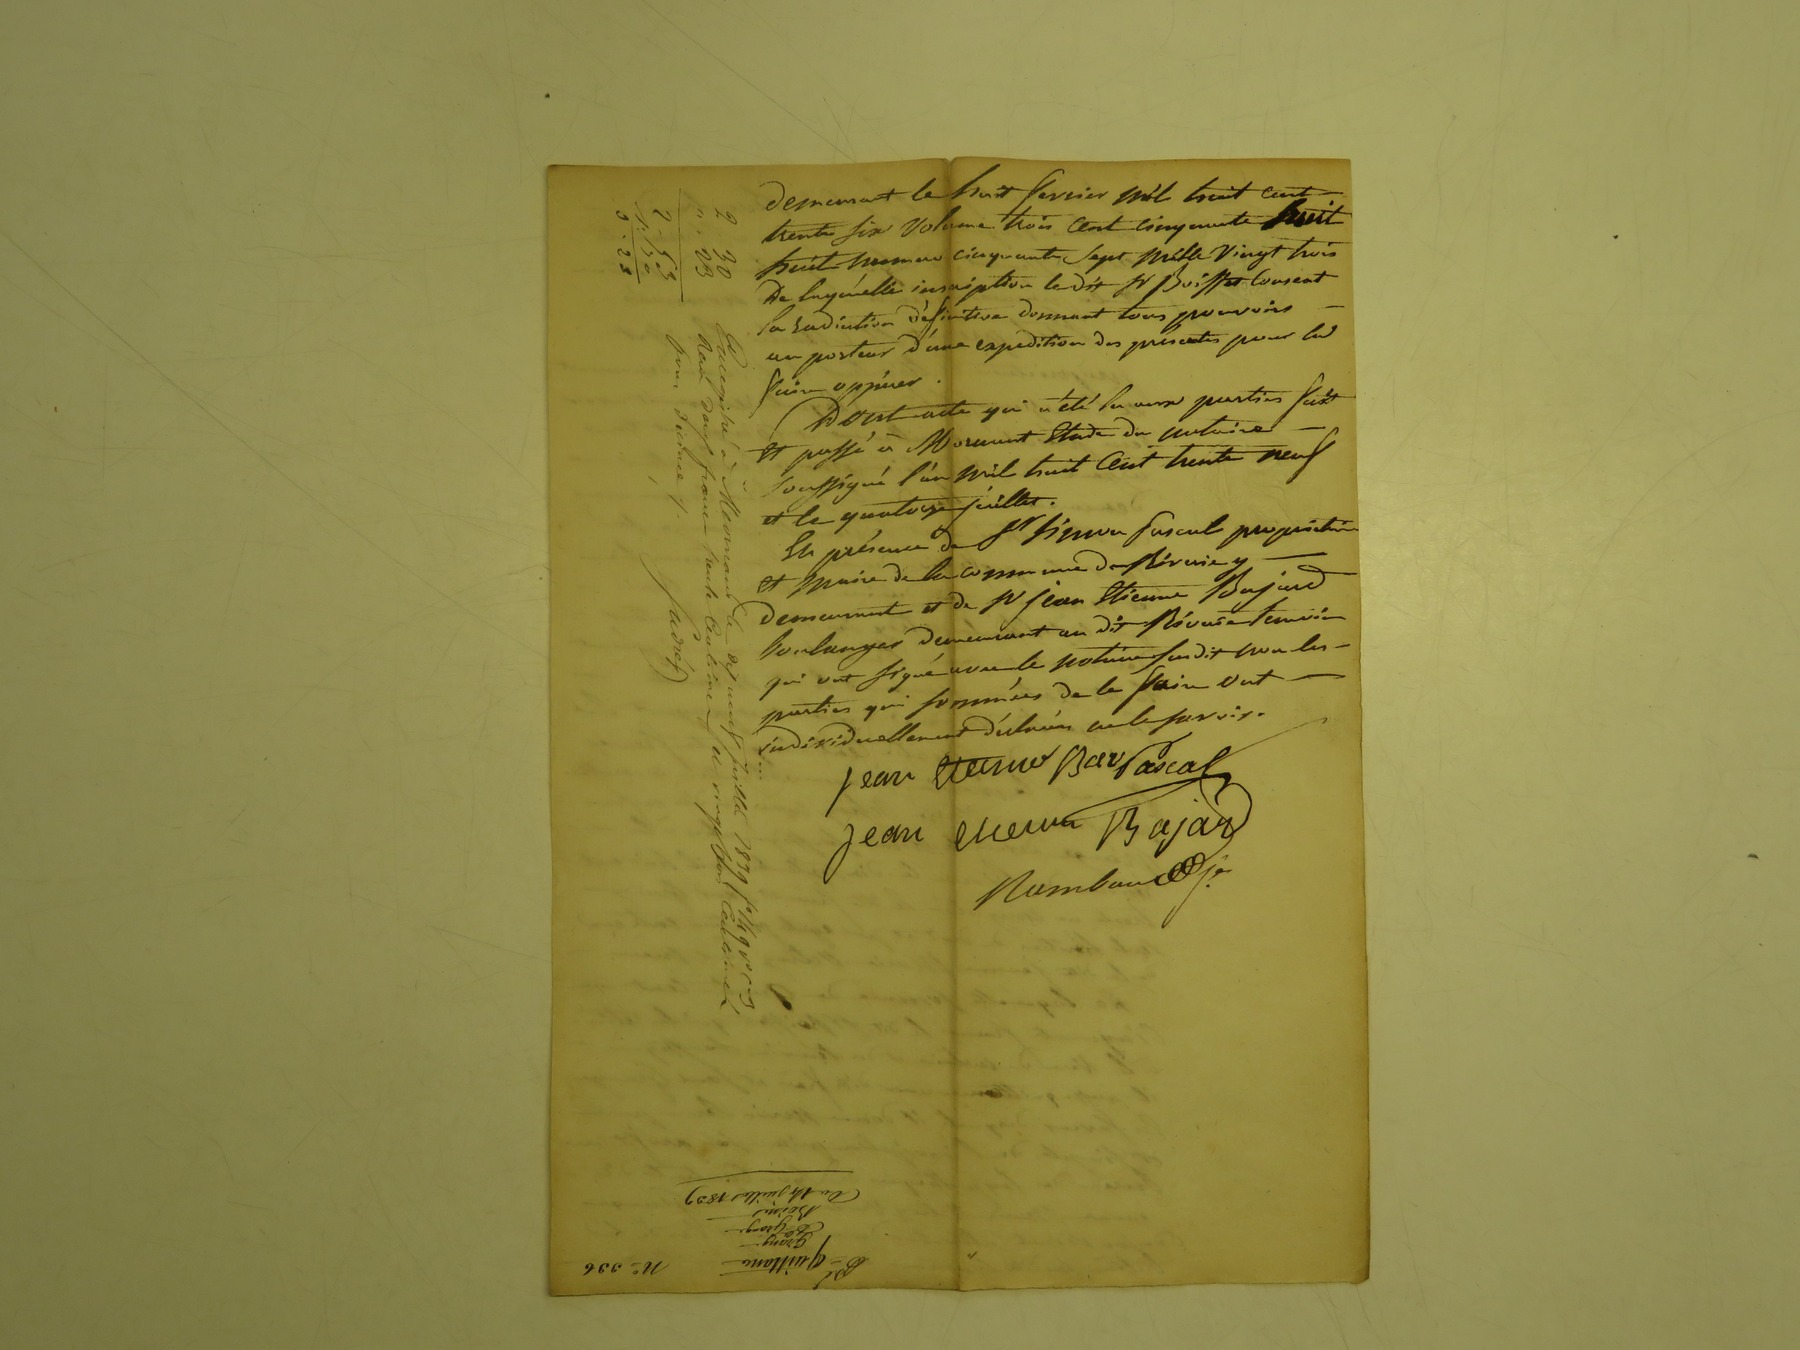 demeurant le huit fevrier mil huit cent
trente six volume trois cent cinquante huit
huit numero cinquante sept mille vingt trois
De laquelle inscription le dit Sr Boisset consent
la radiation définitive donnant tous pouvoirs
au porteur d'une expédition des presentes pour la
faire opperer.
Dont acte qui a été lu aux parties fait
et passé à Mornant Etude du notaire
soussigné l'an mil huit cent trente neuf
et le quatorze juillet.
En présence de Sr Simon Pascal propriétaire
et Maire de la commune de Riverie y
demeurant et de Sr jean Etienne Bajard
boulanger demeurant au dit Riverie temoin
qui ont signé avec le notaire susdit non les
parties qui sommées de le faire ont
individuellement déclarées ne le savoir.
jean etienne Baj Pascal
jean etienne Bajard
Rambaud je
Enregistré à Mornant le dix neuf juillet 1839 fo 149 vo c 3
Reçu deux francs trente centimes et vingt trois centimes
pour decime
2 30
" 23
2 - 53
Quittance
Du 14 juillet 1839
No 336